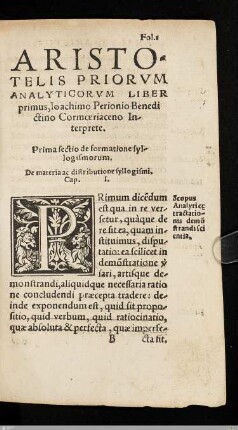 Fol.1
ARISTO-
TELIS PRIORVM
ANALYTICORVM LIBER
primus, Ioachimo Perionio Benedi
ctino Cormœriaceno In-
terprete.
Prima sectio de formatione syl-
logismorum.
De materia ac distributione syllogismi.
Cap. I.
PRimum dicẽdum
est qua in re ver-
setur, quáque de
re sit ea, quam in-
stituimus, dispu-
tatio: ea scilicet in
demõstratione ver-
sari, artisque de-
monstrandi, aliquidque necessaria ratio
ne concludendi præcepta tradere: de-
inde exponendum est, quid sit propo-
sitio, quid verbum, quid ratiocinatio,
quæ absoluta & perfecta, quæ imperfe-
B cta sit,
Scopus
Analyticę
tractatio-
nis demõ
strandi sci
entia.